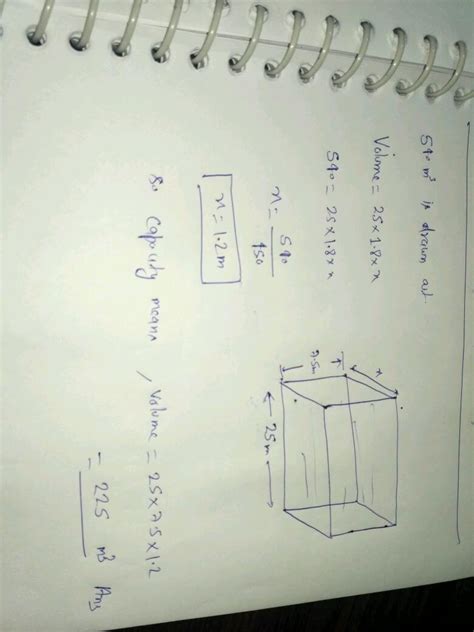 540 m³ is drawn out.
Volume = 25 x 1.8 x x
540 = 25 x 1.8 x x
x = 540
450
x = 1.2 m
So Capacity means, Volume = 25 x 7.5 x 1.2
= 225 m³ Ans
x
7.5m
25m